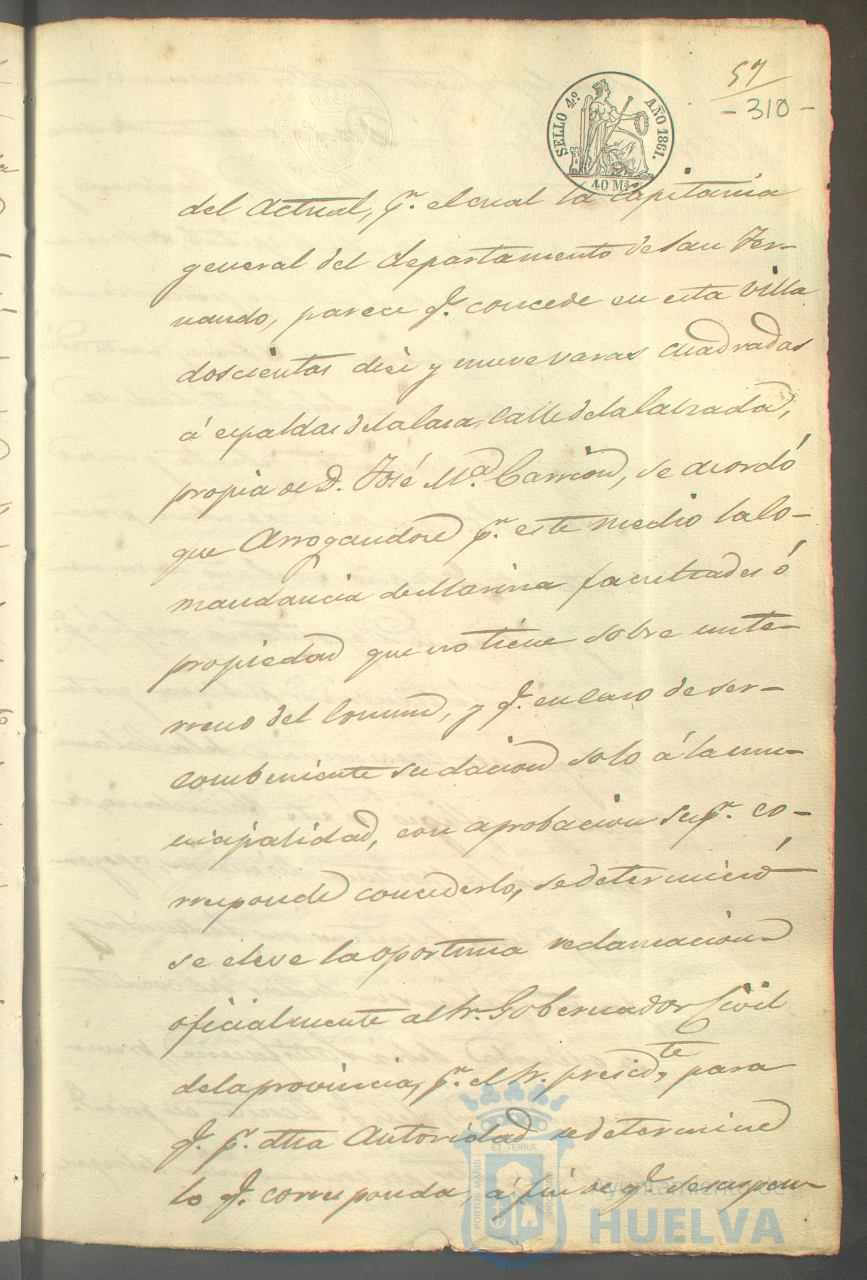 57
- 310 -
SELLO 4.º AÑO 1861.
40 Ms.
del Actual, pr. el cual la capitania
general del departamento de San Fer-
nando, parece qe. concede en esta Villa
doscientas diez y nueve varas cuadradas
á espaldas de la casa, calle de la Calzada,
propia de D. José Ma. Carrion, se acordó
que Arrogandose pr. este medio la Co-
mandancia de Marina facultades ó
propiedad que no tiene sobre un te-
rreno del Comun, y qe. en caso de ser
combeniente su dacion solo á la mu-
nicipalidad, con aprobacion supr. co-
rresponde concederlo, se determinó
se eleve la oportuna reclamacion
oficialmente al Sr. Gobernador Civil
de la provincia, pr. el Sr. presidte, para
qe. pr. dha Autoridad se determine
lo qe. corresponda, á fin de qe.
PORTUS MARIS ET TERRÆ CUSTODIA
Ayuntamiento de
HUELVA